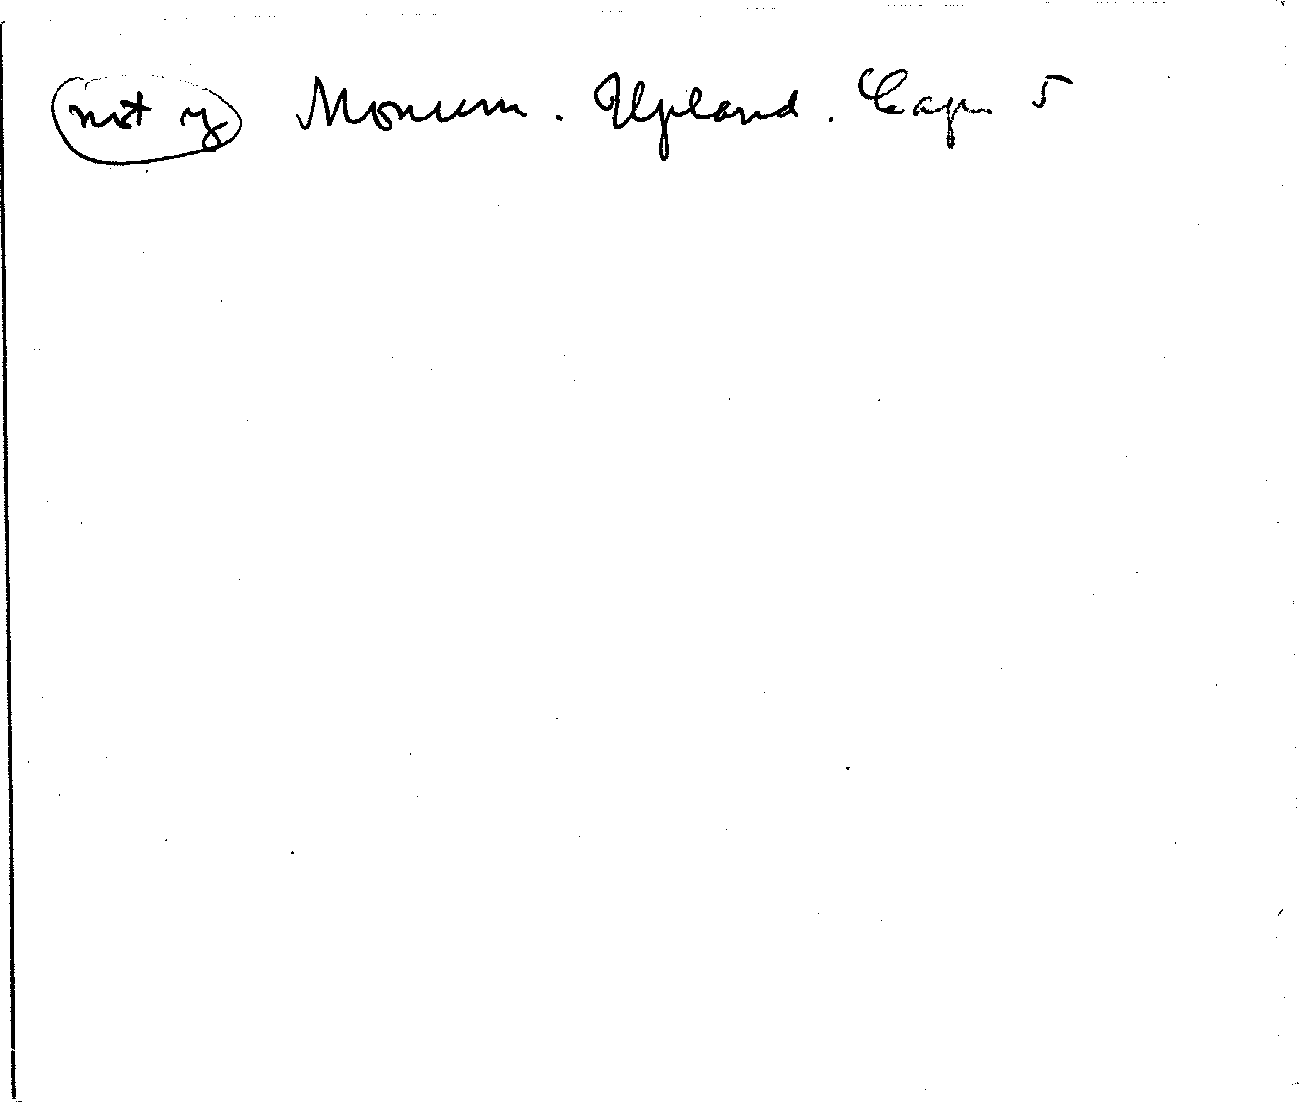 not y Monum. Upland. Cap. 5